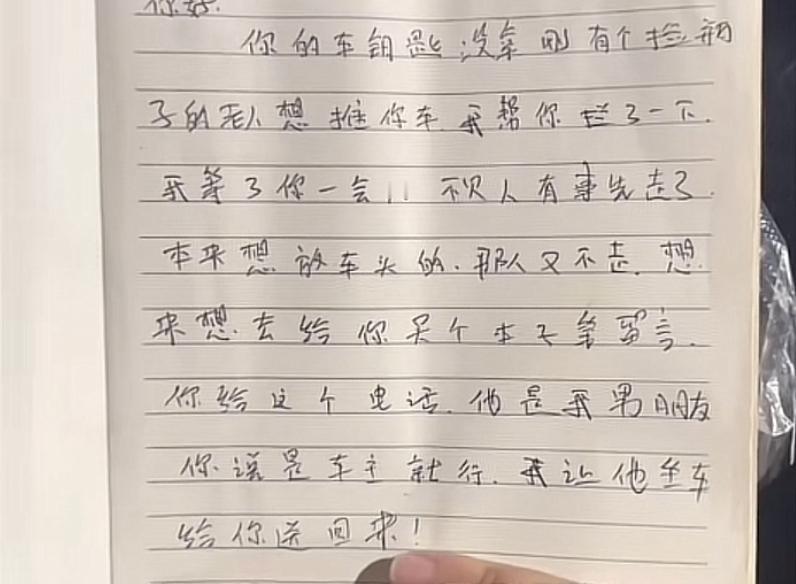 你好.
你的车钥匙没拿 刚有个捡瓶
子的老人想推你车.我帮你拦了一下.
我等了你一会儿 有事先走了.
本来想放车头的.那人又不走.想
来想去给你买个本子笔留言.
你给这个电话.他是我男朋友
你说是车主就行.我让他坐车
给你送回来!